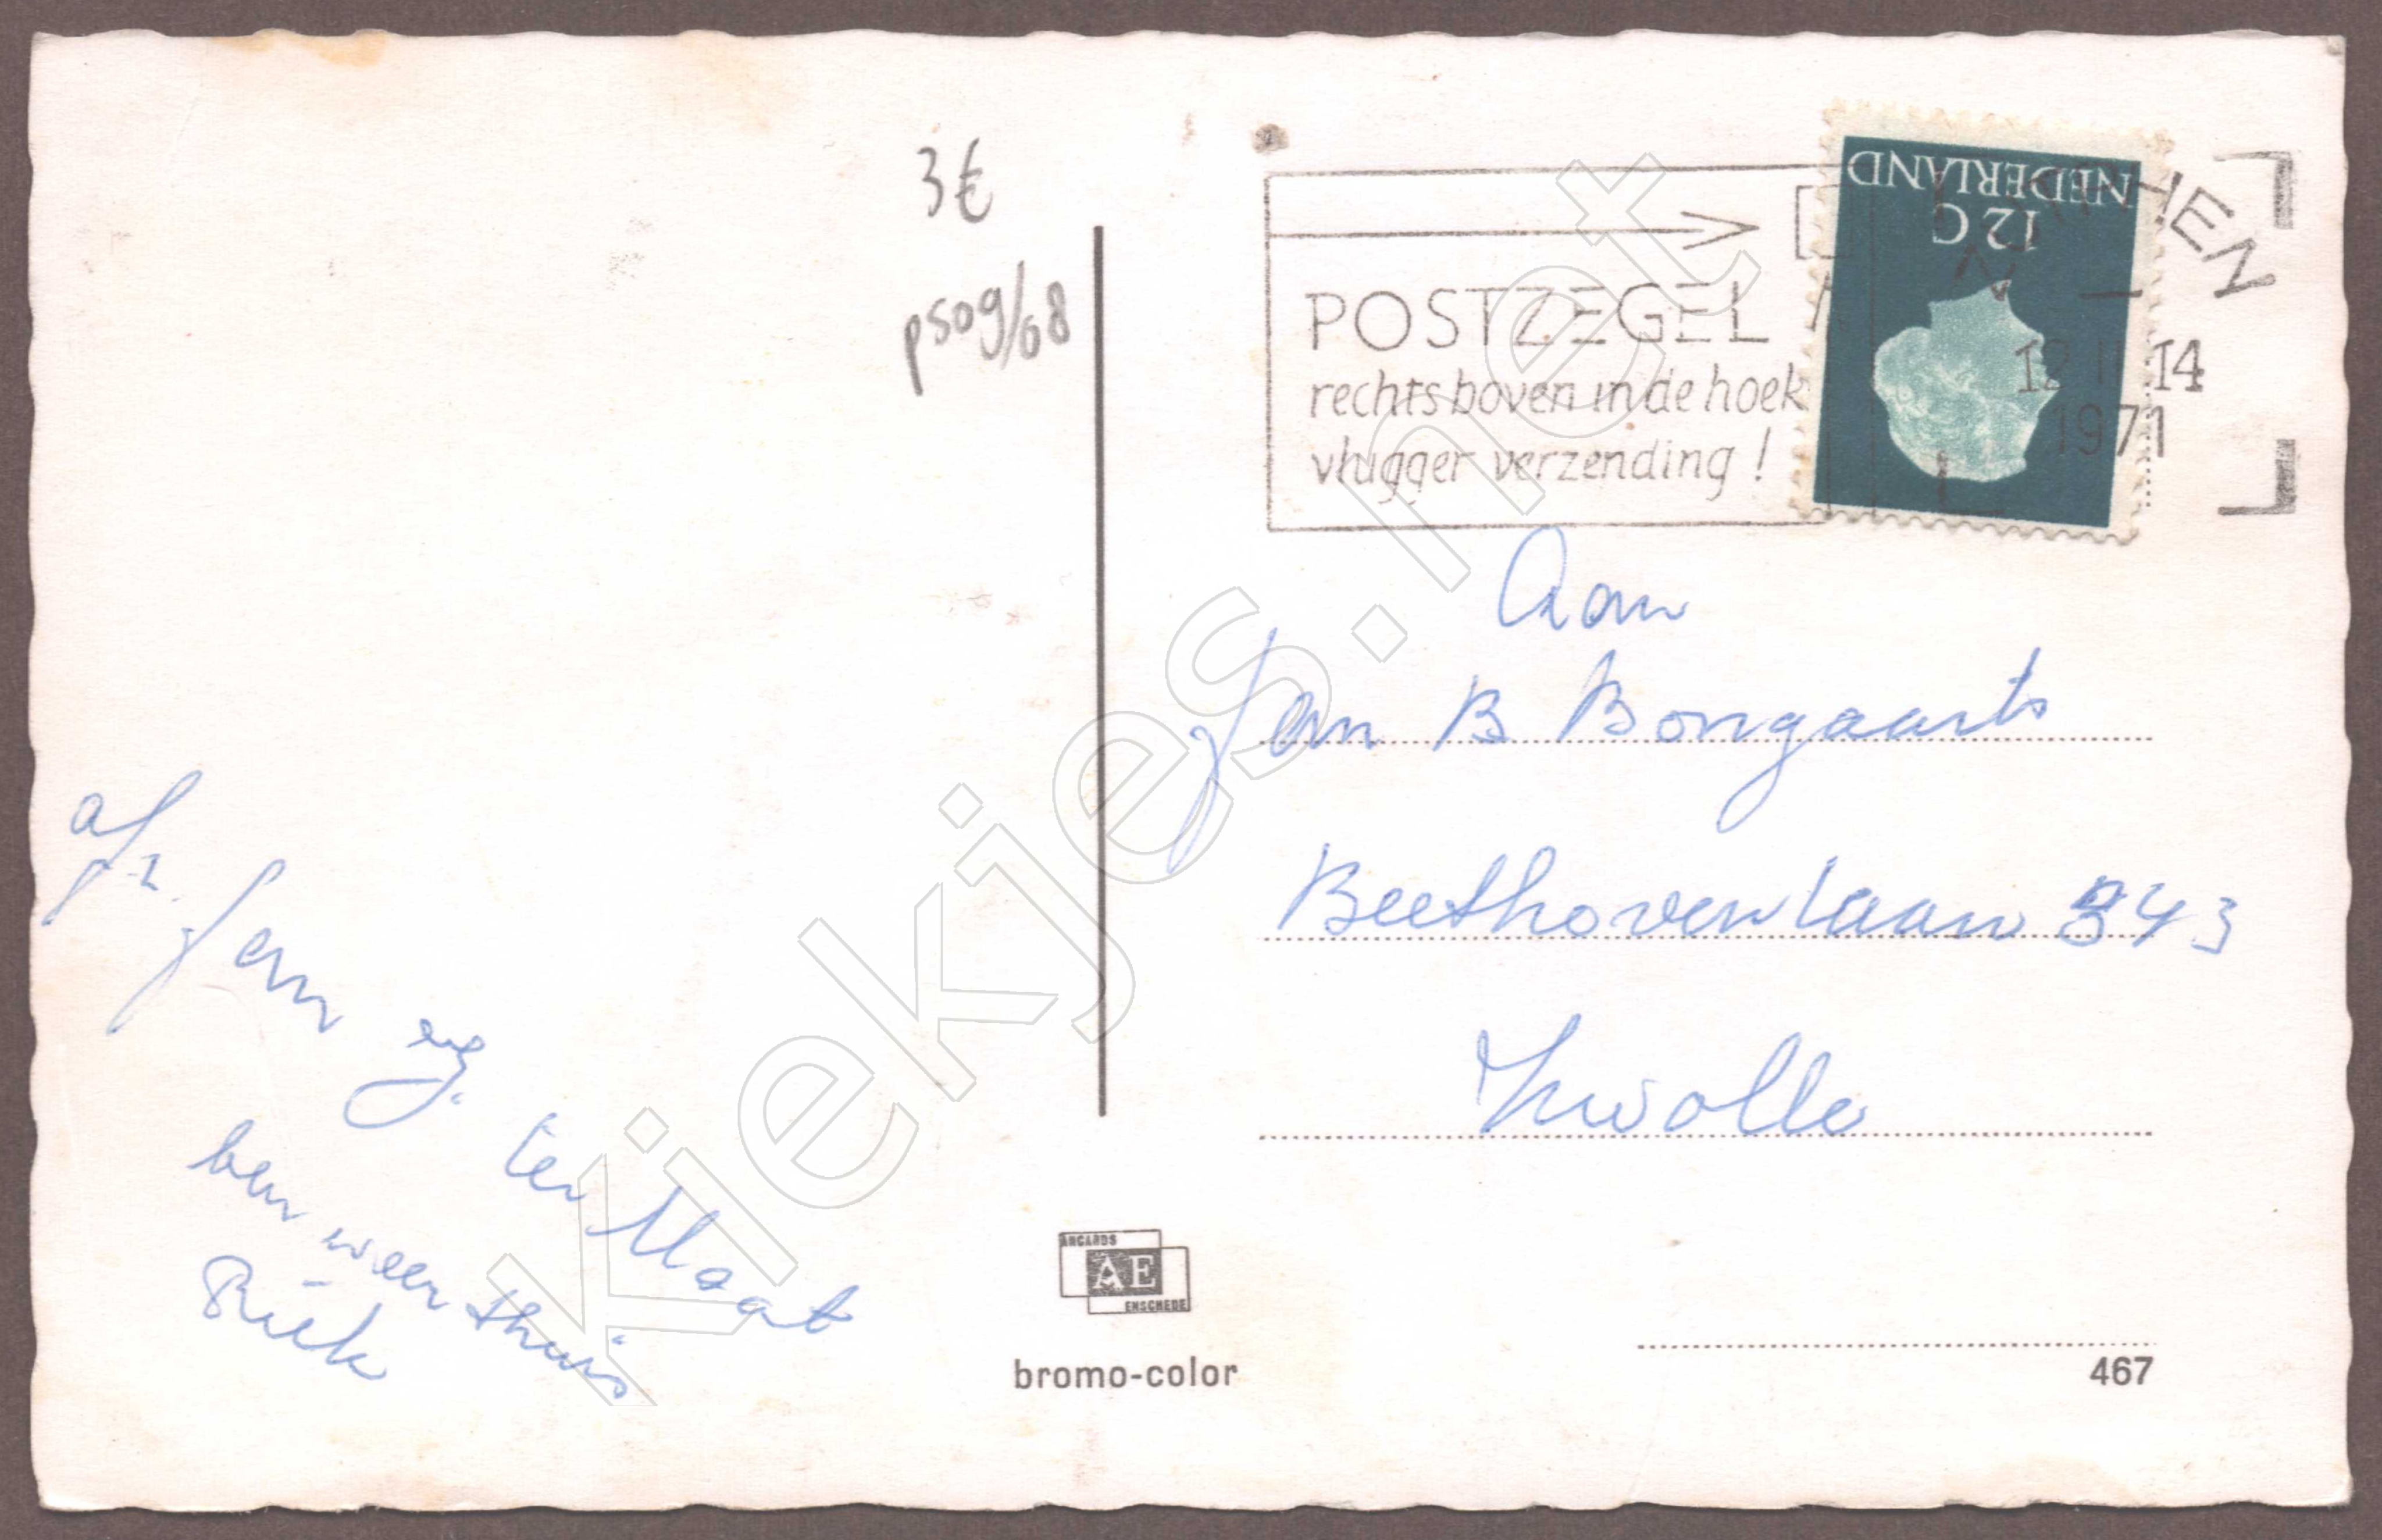 3€
ps09/68
POSTZEGEL
rechts boven in de hoek
vlugger verzending !
NEDERLAND
12 C
12 14
1971
Aan
Jan B Bongaarts
Beethovenlaan 343
Zwolle
afz.
Jan
ter Maat
ben weer thuis
Riek
ANCARDS
AE
ENSCHEDE
bromo-color
467
kiekjes.net